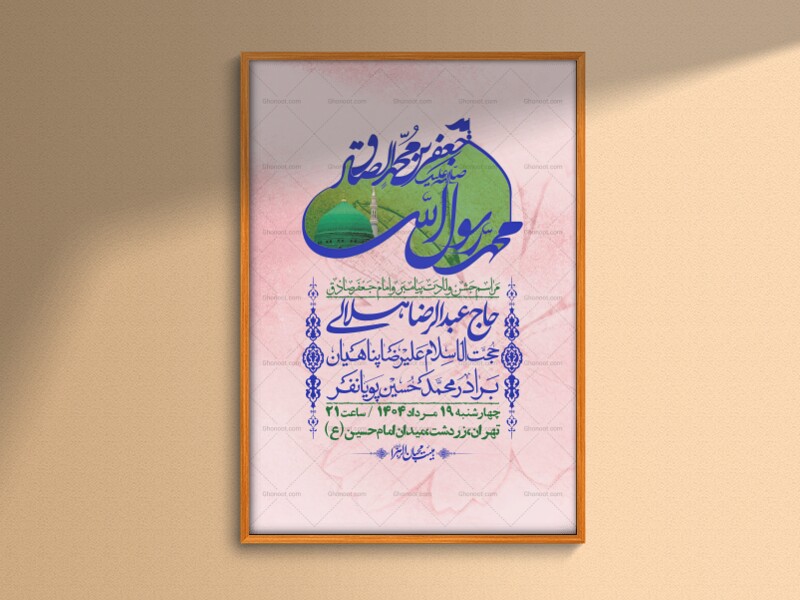 جعفر بن محمد الصادق
صلوات الله علیه
محمد رسول الله
مراسم جشن ولادت پیامبر و امام جعفر صادق
حاج عبدالرضا هلالی
حجت الاسلام علیرضا پناهیان
برادر محمدحسین پویانفر
چهارشنبه ۱۹ مرداد ۱۴۰۴ / ساعت ۲۱
تهران، زردشت، میدان امام حسین (ع)
هیئت محبان الزهرا
Ghonoot.com